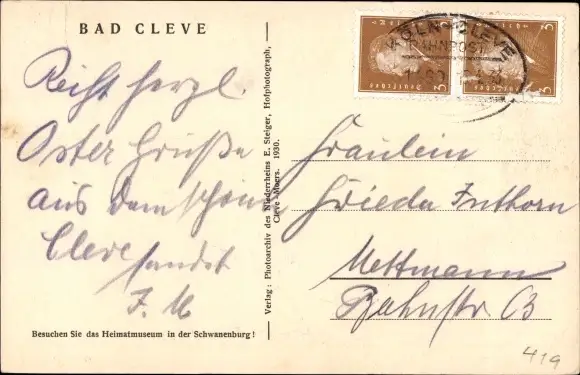 BAD CLEVE
Recht herzl.
Oster Grüße
aus dem schönen
Cleve sandet
F. M
Besuchen Sie das Heimatmuseum in der Schwanenburg!
Verlag: Photoarchiv des Niederrheins E. Steiger, Hofphotograph,
Cleve-Moers. 1930.
KÖLN-CLEVE
BAHNPOST
3 3
Deutsches
Fräulein
Frieda
Mettmann
Bahnstr. 63
419